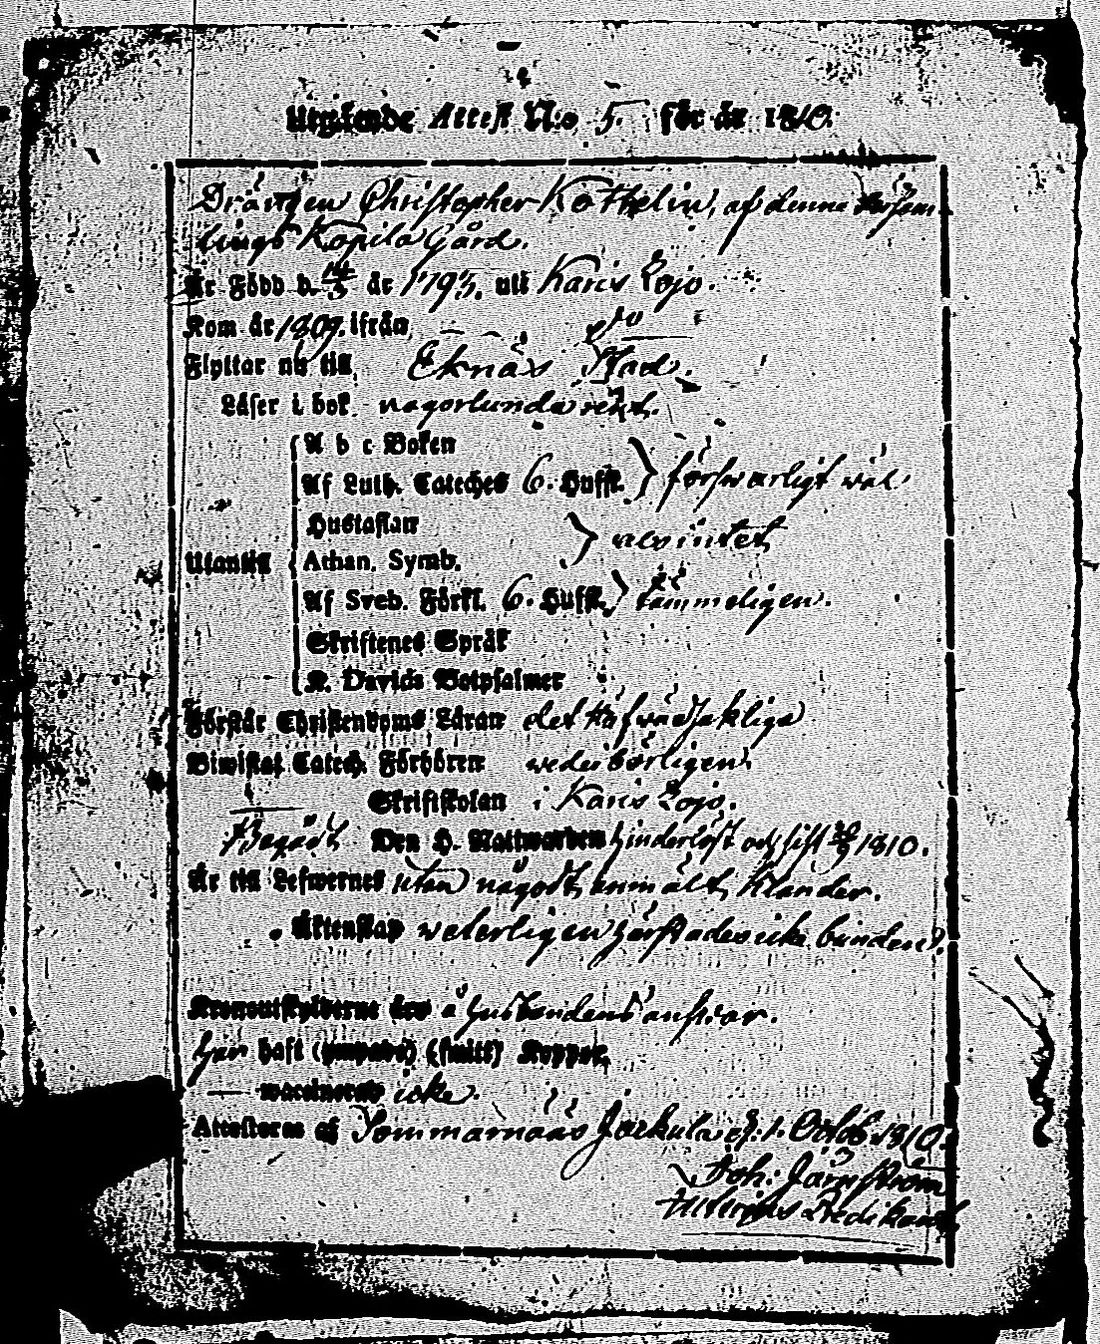 Utgående Attest N:o 5. för år 1810.
Drängen Christopher Kothelin, af denne Försam-
lings Kopila Gård.
Är Född d. 14/5 år 1795. uti Karis Lojo.
Kom år 1809. ifrån do
Flyttar nu till Eknäs Stad.
Läser i bok någorlunda rent.
A b c Boken
Af Luth. Cateches 6. Hufst. } förswarligt wäl.
Hustaflan
Utantill Athan. Symb. }
Af Sveb. Förkl. 6. Hufst. } tämmeligen.
Skriftenes Språk
K. Davids Botpsalmer
Förstår Christendoms Läran det hufwudsakliga
Biwistat Catech. Förhören wederbörligen.
Skriftskolan i Karis Lojo.
Begådt Den H. Nattwarden hinderlöst och sist 1810.
Är till Lefwernet utan någodt anmält klander.
Äktenskap weterligen härstädes icke bunden.
Kronoutskylderne äro å husbondens answar.
Har haft (ympade) (smitt) Koppor,
— waccinerad icke.
Attesteras af Sommarnäs Jerkula d. 1. Octob. 1810.
Joh: Järnström
Predikant.